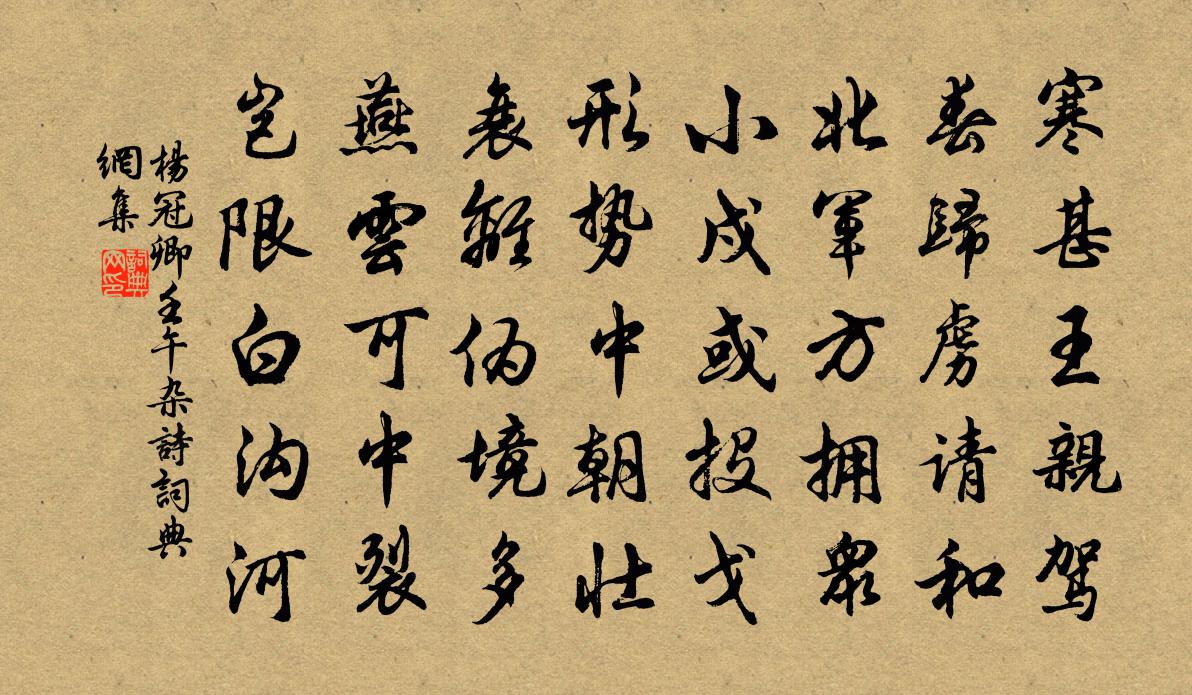 寒甚王親驾
春歸虏请和
北軍方拥眾
小戍或投戈
形势中朝壮
衰離伪境多
燕雲可中裂
岂限白沟河
楊冠卿壬午杂詩詞典
網集
詞典
网印